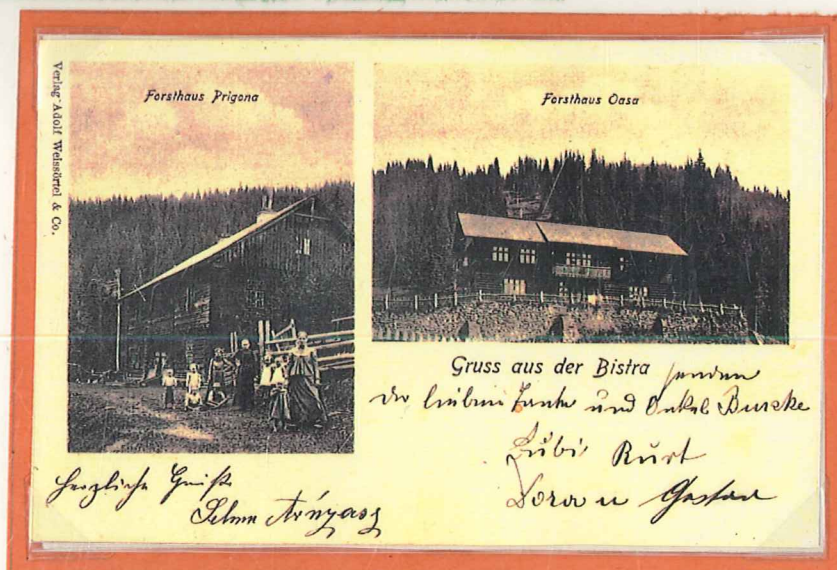 Verlag Adolf Weissörtel & Co.
Forsthaus Prigona
Forsthaus Oasa
Gruss aus der Bistra senden
der lieben Tante und Onkel Burske
Bubi Kurt
Dora u Gustav
Herzliche Grüße
Selma